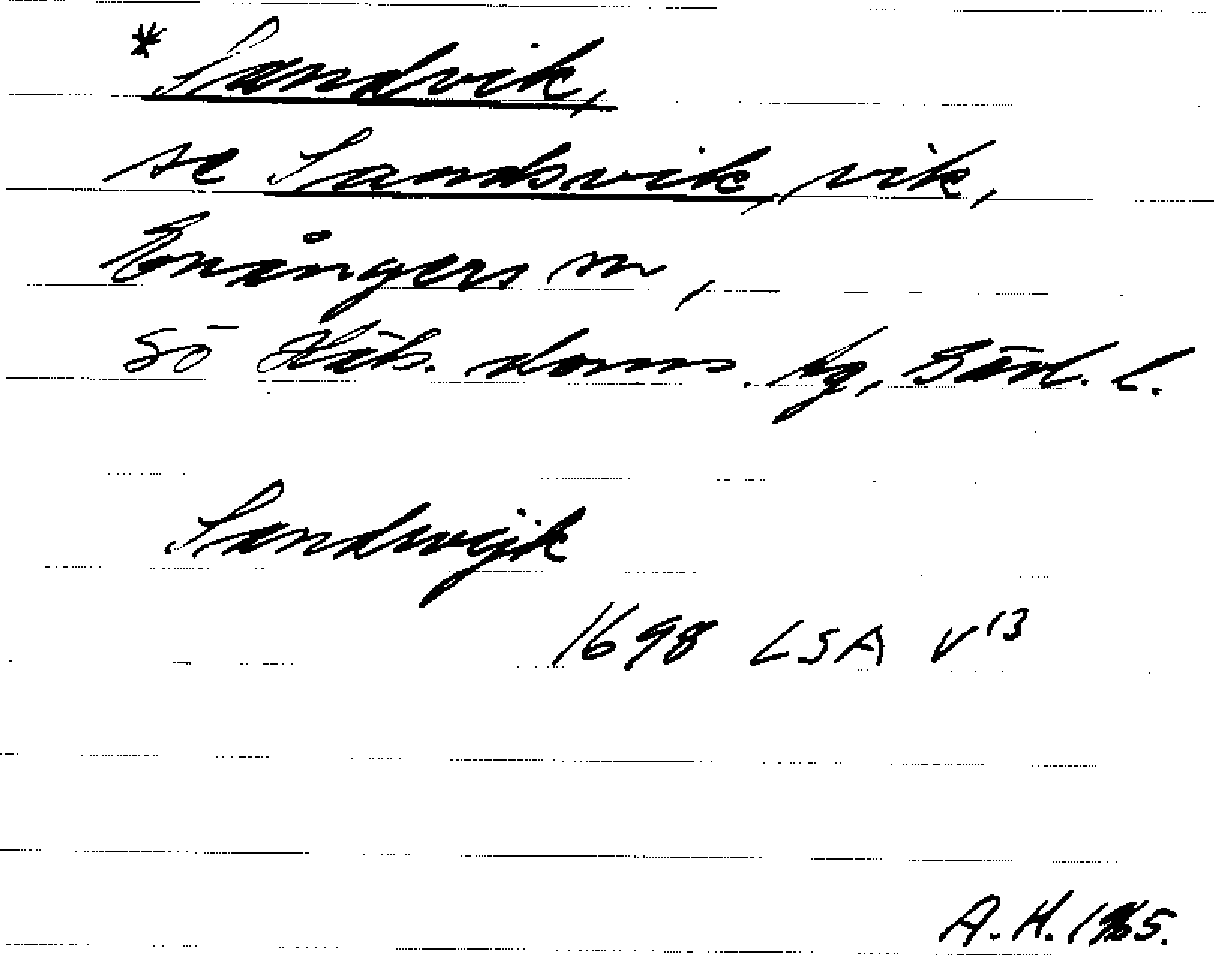 *Sandvik,
se Sandsvik, vik,
Enångers sn,
Sö Häls. doms. hg, Gävl. l.
Sandwijk
1698 LSA V13
A.H. 1965.